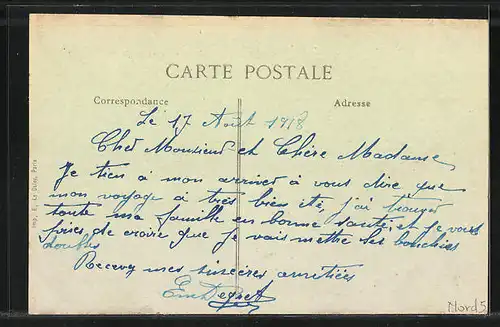 CARTE POSTALE
Correspondance
Adresse
Le 17 Août 1918
Cher Monsieur et Chère Madame
Je tien a mon arriver à vous dire que
mon voyage à très bien été j'ai trouver
toute ma famille en bonne santé, et je vous
pries de croire que je vais mettre les bouchées
doubles
Recevez mes sincères amitiées
Imp. E. Le Deley, Paris
Nord 5